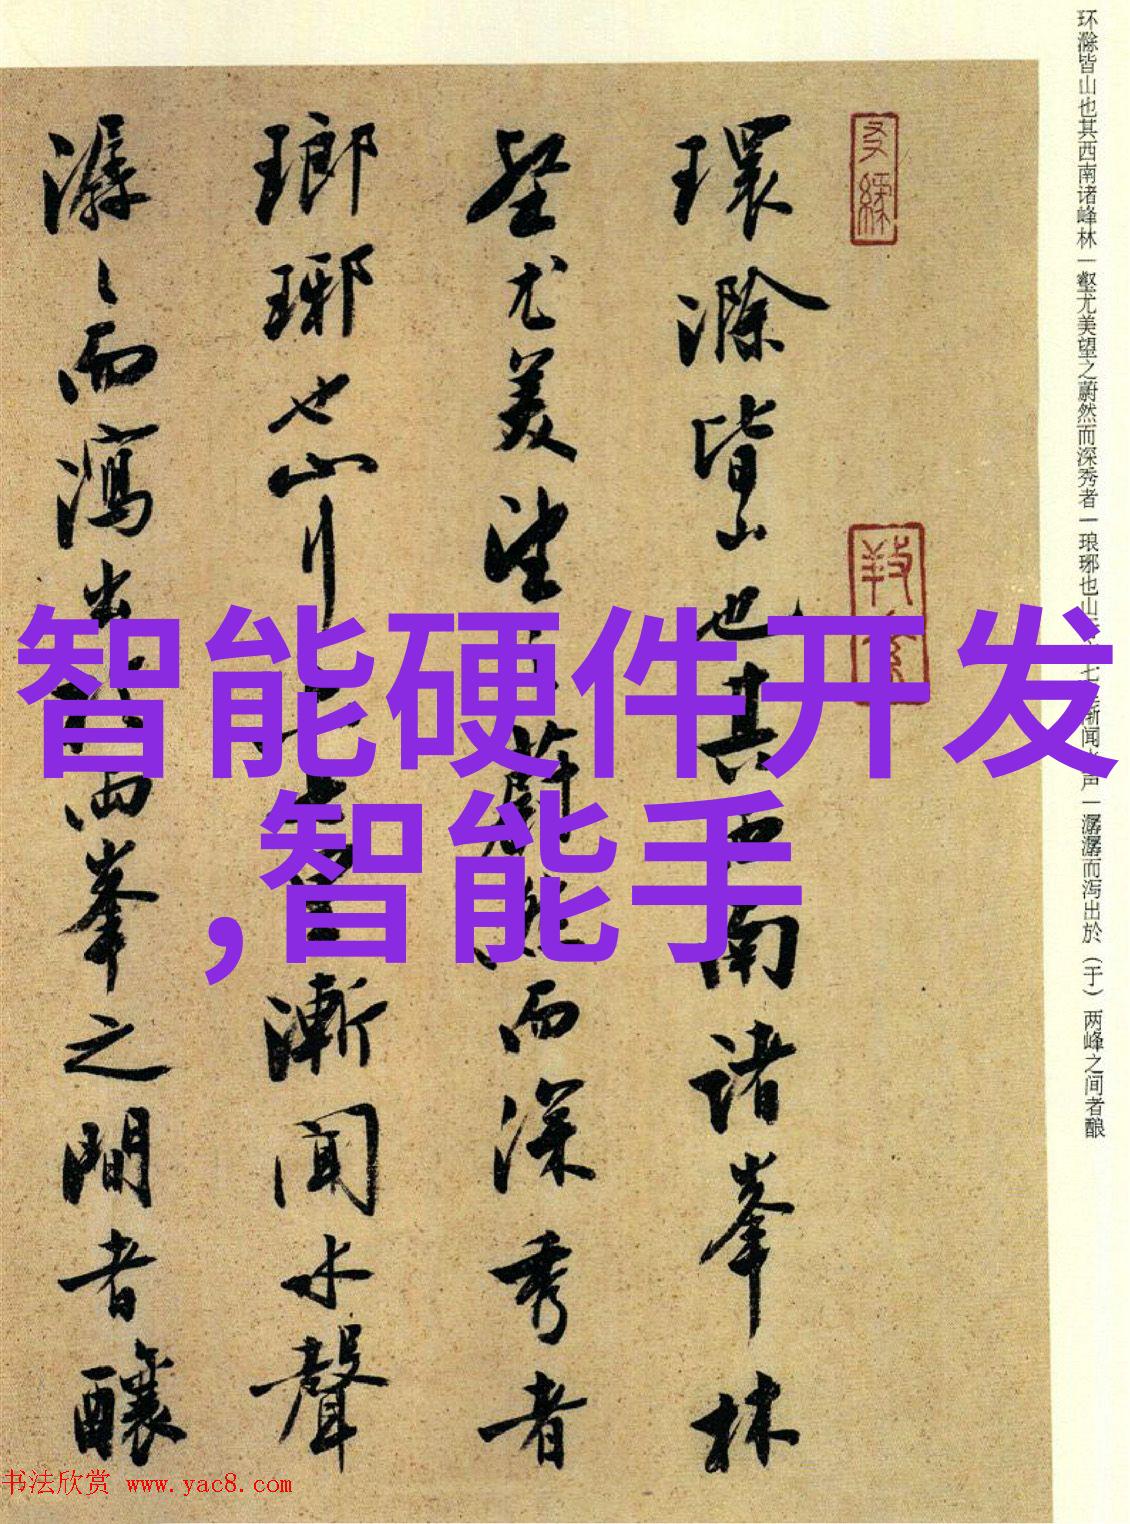 环滁皆山也其西南诸峰林一壑尤美望之蔚然而深秀者一琅琊也山
七
渐闻
声一潺潺而泻出於（于）两峰之间者酿
環滁皆山也其西南諸峯林
壑尤美望之蔚然而深秀者
瑯琊也山行
漸聞水聲
潺〻而瀉出
兩峯之間者釀
智能硬件开发
,智能手
书法欣赏 www.yac8.com